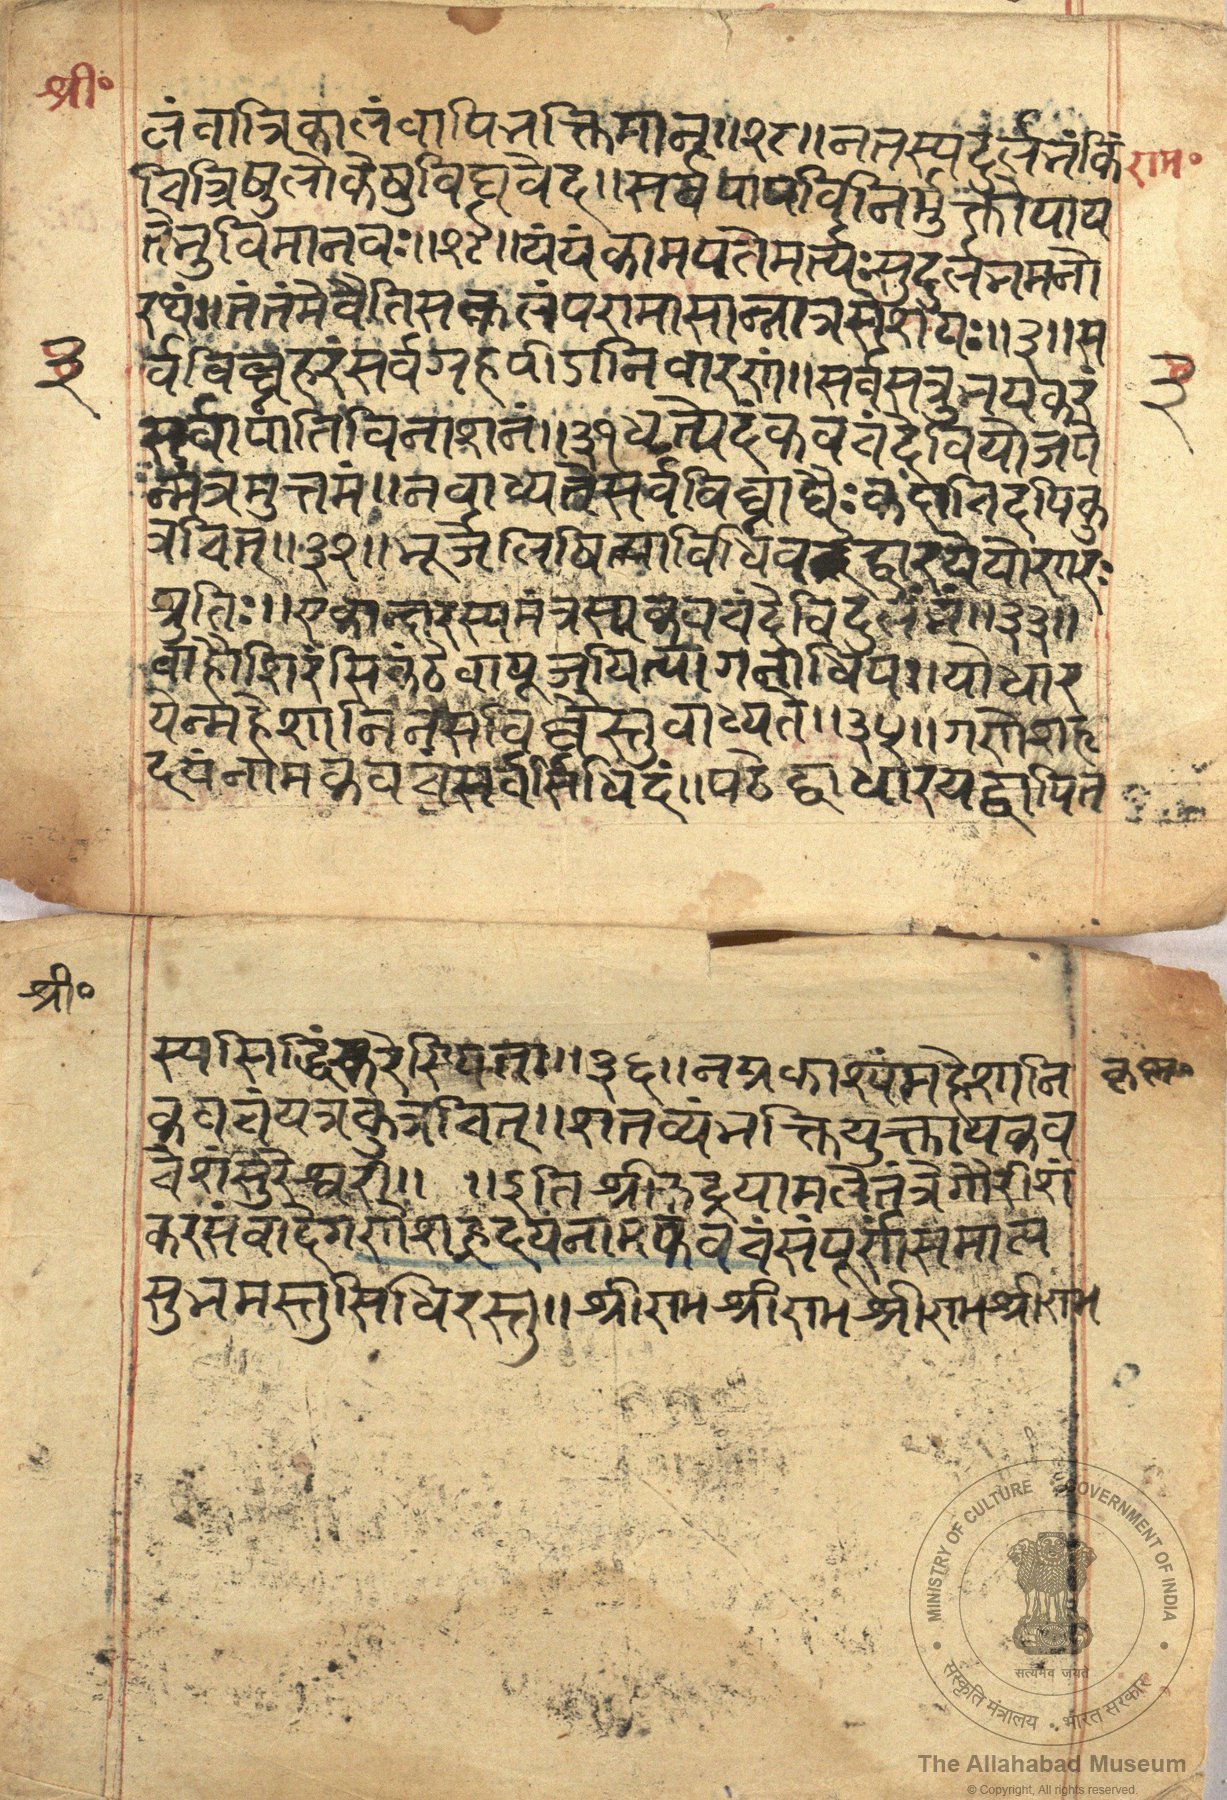 श्री॰
लंवात्रिकालंवापिभक्तिमान्॥२८॥नतस्यदुर्लभंकिं
राम॰
चित्रिषुलोकेषुविद्यवेद॥सर्वपापविनिर्मुक्तोपाय
तेनुविमानवः॥२९॥यंयंकामयतेमर्त्यःसुदुर्लभमनो
रथं॥तंतंमेवैतिसकलंषरामासान्नात्रसंशयः॥३॥स
३
र्वविघ्नहरंसर्वग्रहपीडानिवारणं॥सर्वसत्रुभयकरं
३
सर्वापर्त्तिविनाशनं॥३१धृत्वेदंकवचंदेवियोजपे
न्मंत्रमुत्तमं॥नवाध्यतेसर्वविघ्नाद्यैःकदाचिदपिकु
त्रचित्॥३२॥भूर्जेलिषित्वाविधिवद्धारयेद्योणरः
श्रतिः॥एकान्दारस्यमंत्रस्यकवचंदेविदुर्लभं॥३३॥
वाहौशिरसिकंठेवापूजयित्वागनाधिपः॥योधार
येन्महेशानिनसविघ्नैस्तुवाध्यते॥३५॥गणेशहृ
दयंनामकवचंसर्वसिधिदं॥पठेद्वाधारयद्वापित
श्री॰
स्यसिद्धिकरेस्थिता॥३६॥नप्रकाश्यंमहेशानि
कृष्ण॰
कवचंयत्रकुत्रचित्॥शतव्यंभक्तियुक्तायकव
चेशंसुरेश्वरी॥ ॥इतिश्रीरुद्रयामलेतंत्रेगौरीशं
करसंवादेगणेशहृदयनामकवचंसंपूर्णसमाप्त
सुभमस्तुसिधिरस्तु॥श्रीरामश्रीरामश्रीरामश्रीराम
MINISTRY OF CULTURE GOVERNMENT OF INDIA
सत्यमेव जयते
संस्कृति मंत्रालय • भारत सरकार
The Allahabad Museum
© Copyright, All rights reserved.